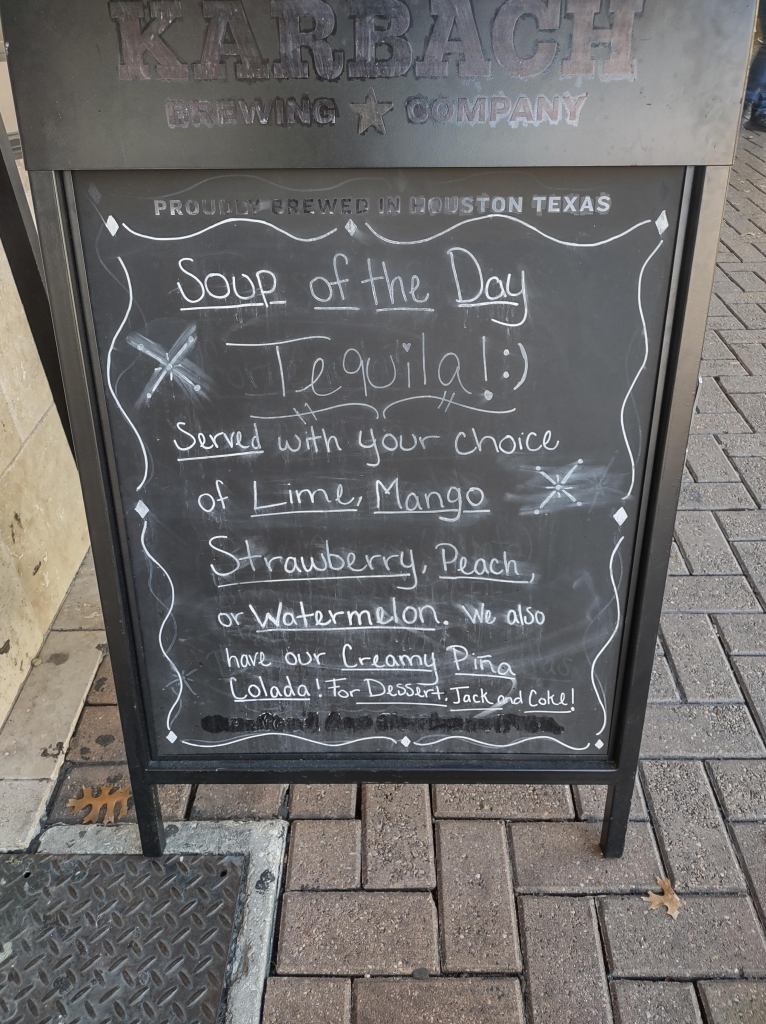 KARBACH
BREWING ★ COMPANY
PROUDLY BREWED IN HOUSTON TEXAS
Soup of the Day
Tequila! :)
Served with your choice
of Lime, Mango
Strawberry, Peach,
or Watermelon. We also
have our Creamy Piña
Colada! For Dessert, Jack and Coke!